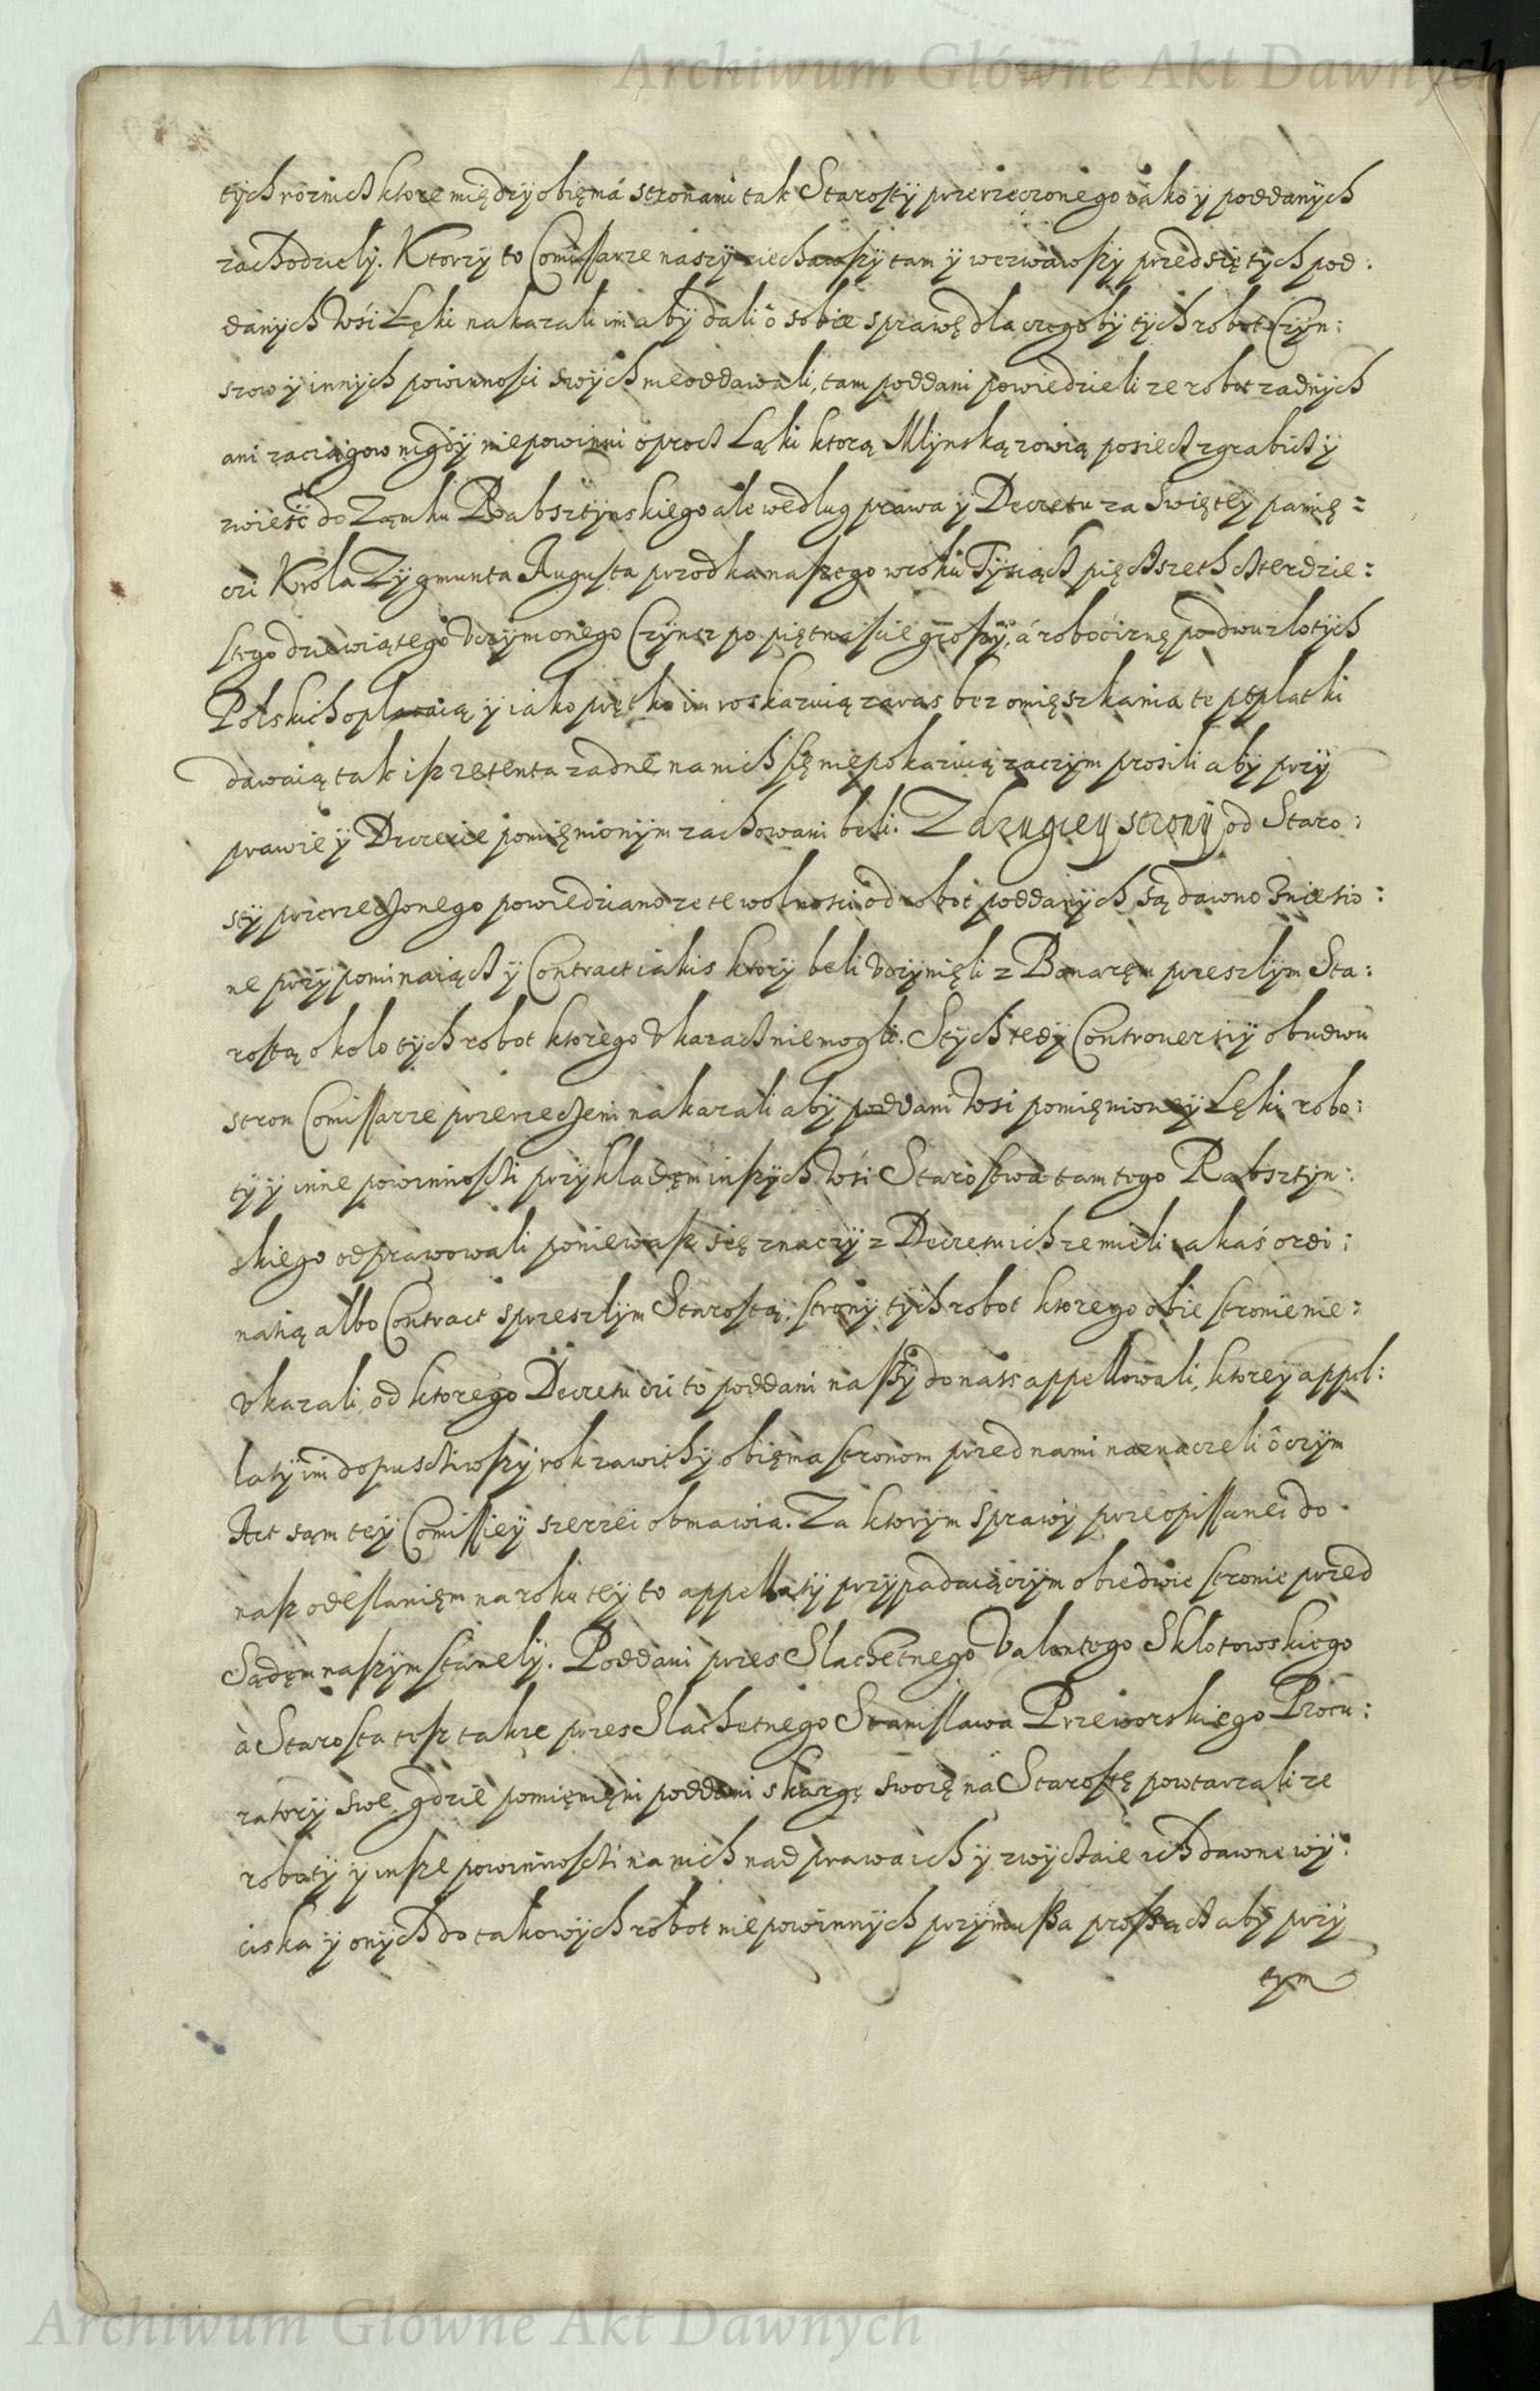 Archiwum Główne Akt Dawnych
tych roznich ktore między obięmá stronami tak Starosty przerzeczonego iáko y poddanych
zachodziely. Ktorzy to Comissarze naszy ziechawszy tam y wezwawszy przed się tych pod:
danych wsi Łęki nakazali im aby dali o sobie sprawę dla czegoby tych robot Czyn:
szow y innych powinnosci swych nieoddawali, tam poddani powiedzieli ze robot zadnych
ani zaciągow nigdy niepowinni oproch Łąki ktorą Młynską zowią posiech zgrabich y
zwieść do Zamku Rabsztynskiego ale według prawa y Decretu za Swiętey pamię:
czi Krola Zygmunta Augusta przodka naszego w roku Tysiąch pięchseth chterdzie:
stego dziewiątego vczynionego Czynsz po piętnascie groszy, á roboćiznę po dwu zlotych
Polskich oplacaią y iako prętko im roskazuią zaras bez omięszkania te poplatki
dawaią tak isz retenta zadne na nich się niepokazuią zaczym prosili aby przy
prawie y Decrecie pomięnionym zachowani beli. Z drugiey strony od Staro:
sty przerzeczonego powiedziano ze te wolnosci od robot poddanych są dawno zniesio:
ne przypominaiąch y Contract iakis ktory beli vczynięli z Bonaręm przeszlym Sta:
rostą okolo tych robot ktorego vkazach niemogli. S tych tedy Controuersiy obudwu
stron Comissarze przerzeczeni nakazali aby poddani wsi pomięnioney Łęki robo:
ty y inne powinnosti przykladęm inszych wsi Starostwa tamtego Rabsztyn:
skiego odprawowali poniewasz się znaczy z Decretu ich ze mieli iakaś ordi:
natią albo Contract s przeszlym Starostą, strony tych robot ktorego obie stronie nie:
vkazali, od ktorego Decretu czi to poddani naszy do nass appellowali, ktorey appel:
laty im dopusciwszy rok zawithy obięma stronom przed nami naznaczeli o czym
Act sam tey Comissiey szerzei obmawia. Za ktorym sprawy przeopissanei do
nasz odeslanięm na roku tey to appellaty przypadaiączym obiedwie stronie przed
Sądem naszym stanely. Poddani przes Slachetnego Valentego Sklotowskiego
à Starosta tesz takze przes Slachetnego Stanislawa Przeworskiego Procu:
ratory swe, gdzie pomięnięni poddani skargę swoię na Starostę powtarzali ze
roboty y insze powinnosti na nich nad prawa ich y zwychaie ich dawne wy:
ciska y onych do takowych robot niepowinnych przymussa prosząch aby przy
tym
Archiwum Główne Akt Dawnych